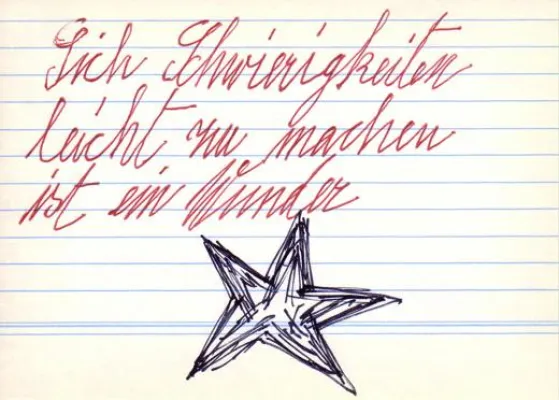 Sich Schwierigkeiten
leicht zu machen
ist ein Wunder